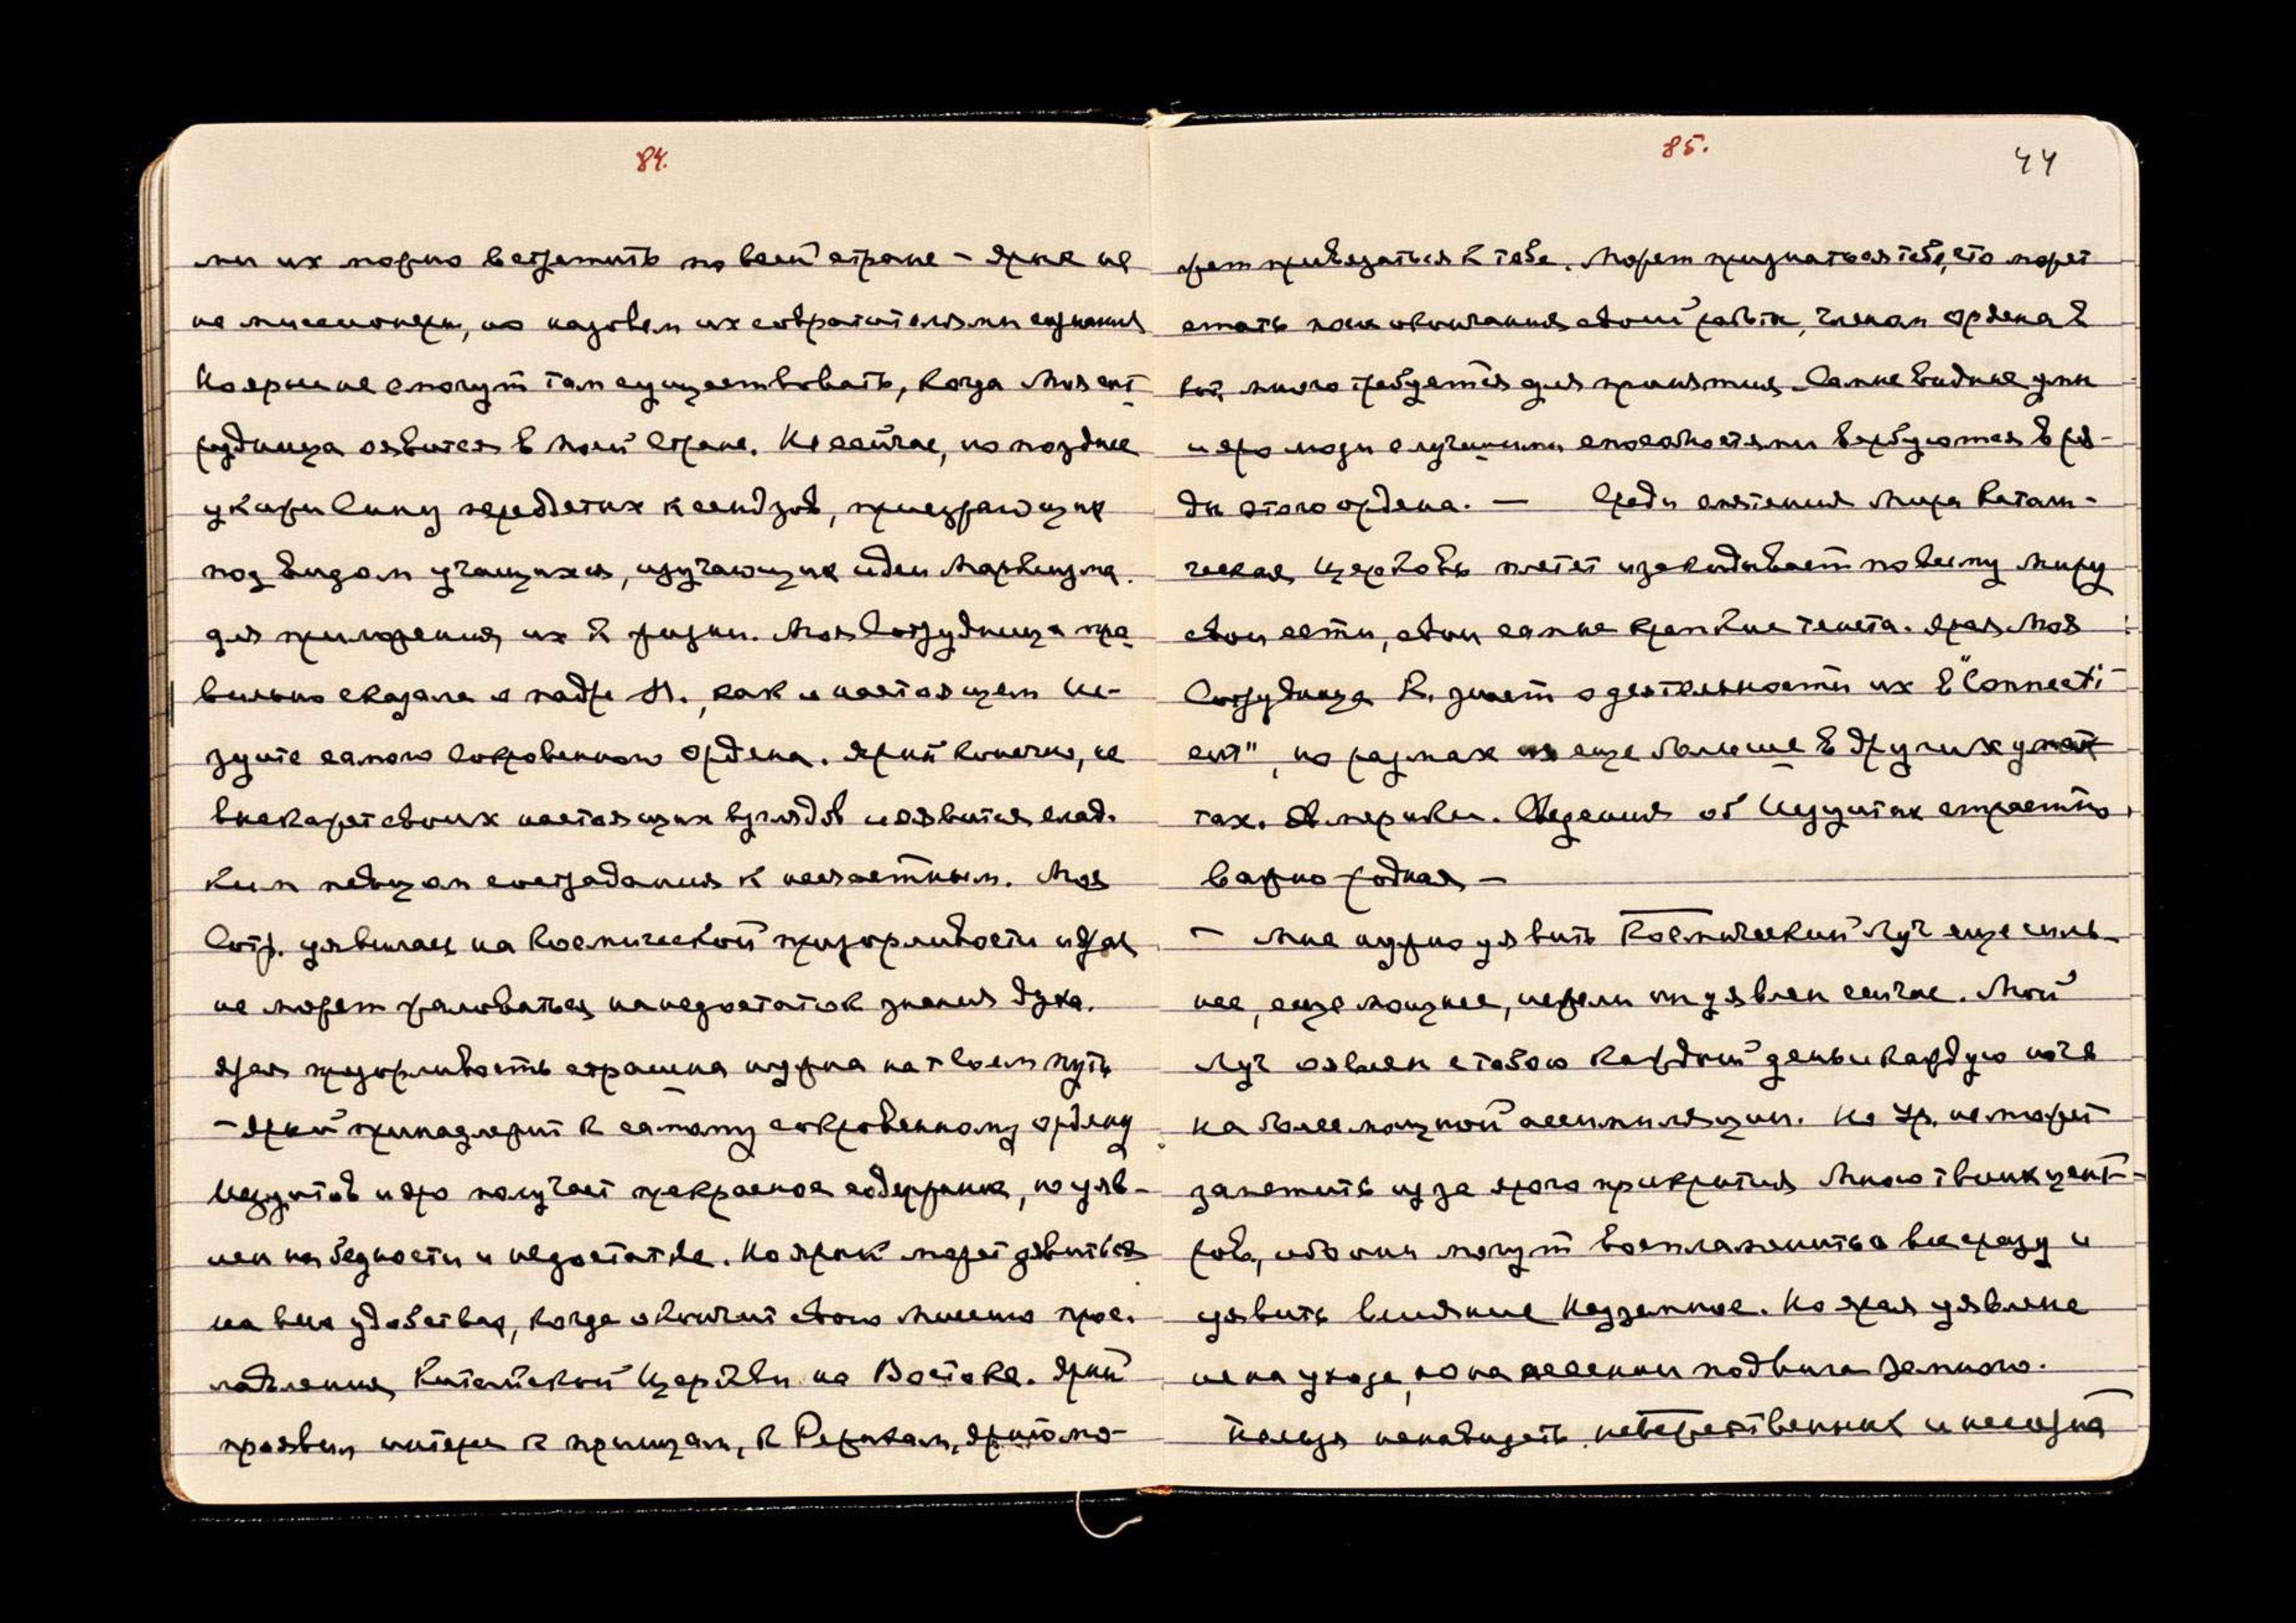 84.
ми их можно встретить по всей стране – Ярые не
не миссионеры, но назовем их совратителями сознания
Но ярые не смогут там существовать, когда Моя сот
рудница явится в Моей Стране. Не сейчас, но позднее
укажи Сину переодетых ксендзов, приезжающих
под видом учащихся, изучающих идеи Марксизма
для приложения их к жизни. Моя Сотрудница пра
вильно сказала о падре Я., как о настоящем Ие-
зуите самого сокровенного Ордена. Ярый конечно, не
выскажет своих настоящих взглядов и явится слад.
ким певцом сострадания к несчастным. Моя
Сотр. уявилась на Космической прозорливости и ярая
не может жаловаться на недостаток знания духа.
Ярая прозорливость страшна нужна на твоем пути
– Ярый принадлежит к самому сокровенному ордену
Иезуитов и яро получает прекрасное содержание, но уяв-
лен на бедности и недостатке. Но ярый может уявиться
на всех удобствах, когда окончит свою миссию прос.
лавления Китайской Церкви на Востоке. Ярый
проявил интерес к принцам, к Рерихам, ярый мо-
85.
44
жет привязаться к тебе. Может признаться тебе, что может
стать после окончания своей работы членом ордена
кот. много требуется для принятия. Самые видные умы
и яро люди с лучшими способностями вербуются в ря-
ды этого ордена. – Среди смятения Мира Катали-
ческая Церковь плетет и закидывает по всему миру
свои сети, свои самые крепкие тенета. Ярая Моя
Сотрудница К. знает о деятельности их в "Connecti
cut", но размах их еще больше в других шта
тах. Америки. Сведения об Иезуитах страстно
важно родная –
– Мне нужно уявить Космический Луч еще силь-
нее, еще мощнее, нежели он уявлен сейчас. Мой
Луч явлен с тобою каждый день и каждую ночь
на более мощной ассимиляции. Но Ур. не может
заметить из за ярого прикрытия Мною твоих цент-
ров, ибо они могут воспламениться все сразу и
уявить влияние Надземное. Но ярая уявлена
не на уходе, но на несении подвига Земного.
Нельзя ненавидеть невежественных и несозна